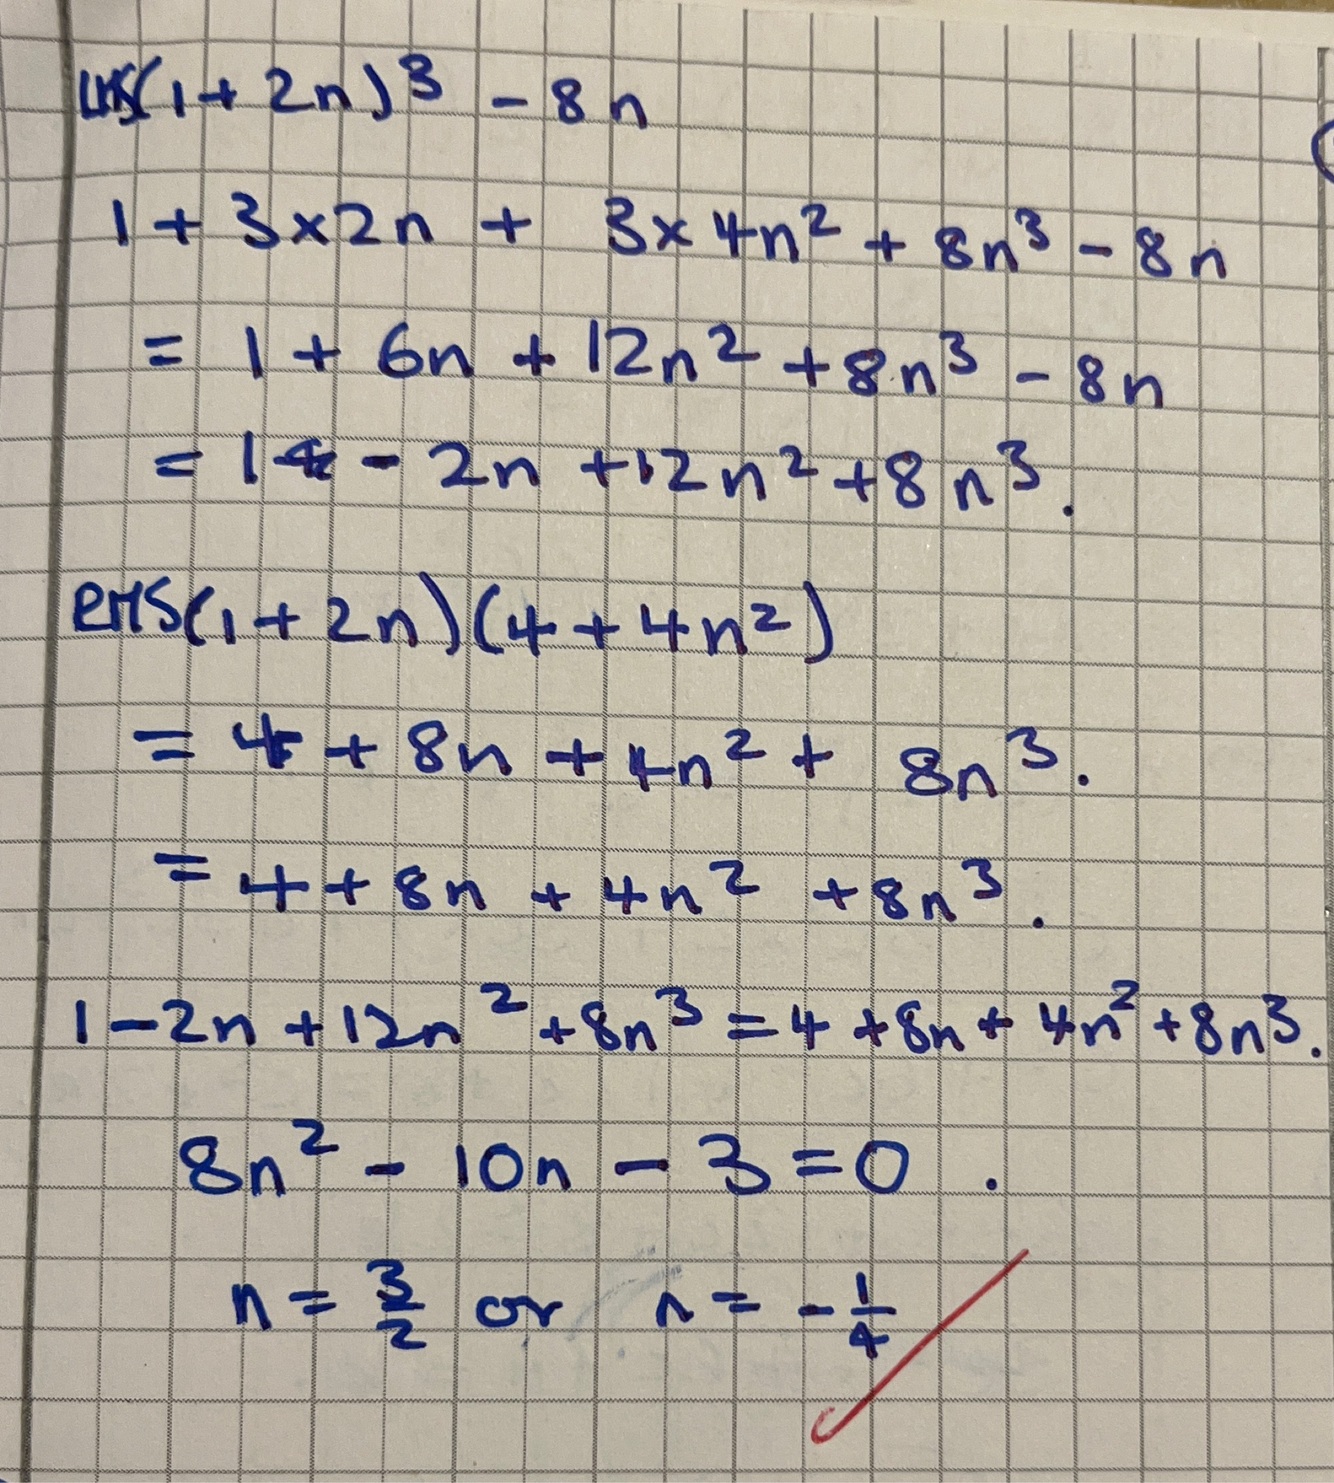 LHS(1+2n)³ - 8n
1 + 3×2n + 3×4n² + 8n³ - 8n
= 1 + 6n + 12n² + 8n³ - 8n
= 1 - 2n + 12n² + 8n³.
RHS(1+2n)(4+4n²)
= 4 + 8n + 4n² + 8n³.
= 4 + 8n + 4n² + 8n³.
1 - 2n + 12n² + 8n³ = 4 + 8n + 4n² + 8n³.
8n² - 10n - 3 = 0 .
n = 3/2 or n = -1/4